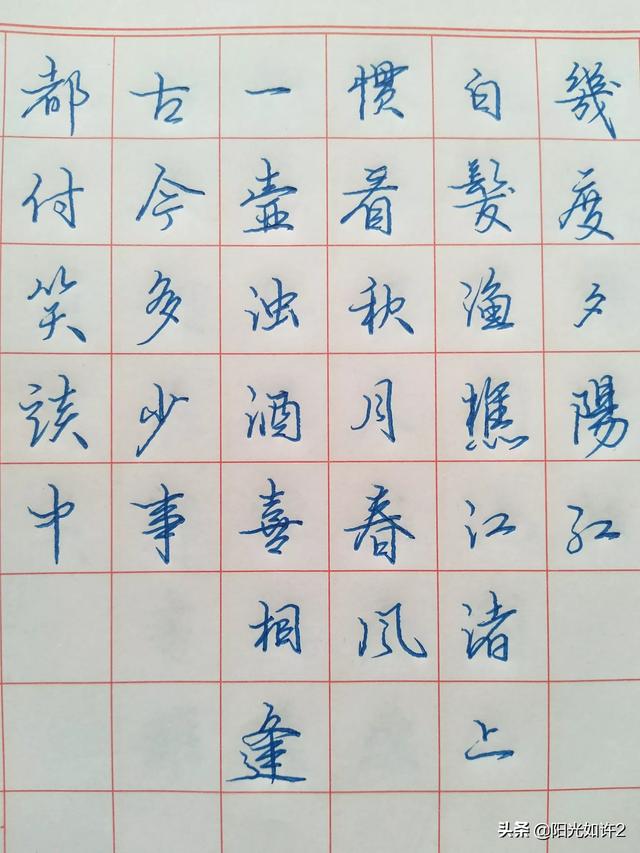 幾度夕陽紅
白髮渔樵江渚上
惯看秋月春風
一壺浊酒喜相逢
古今多少事
都付笑談中
头条 @阳光如许2